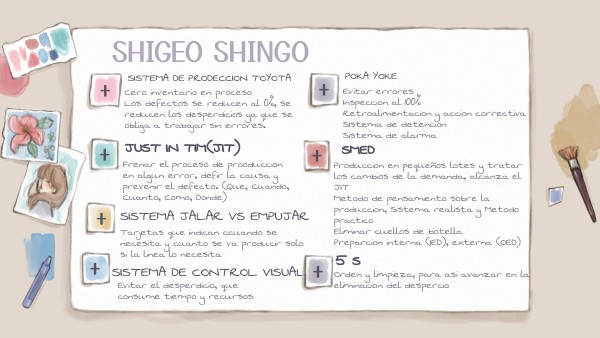 SHIGEO SHINGO
SISTEMA DE PRODECCION TOYOTA
Cero inventario en proceso
Los defectos se reducen al 0%, se
reducen los desperdicios ya que se
obliga a trabajar sin errores.
JUST IN TIM(JIT)
Frenar el proceso de prooduccion
en algun error, defir la causa y
prevenir el defecto. (Que, Cuando,
Cuanto, Como, Donde)
SISTEMA JALAR VS EMPUJAR
Tarjetas que indican ccuando se
necesita y cuanto se va producir solo
si la linea lo necesita
SISTEMA DE CONTROL VISUAL
Evitar el desperdicio, que
consume tiempo y recursos
POKA YOKE
Evitar errores
Inspeccion al 100%
Retroalimentacion y accion correctiva
Sistema de detencion
Sistema de alarma
SMED
Produccion en pequeños lotes y tratar
los cambios de la demanda, alcanza el
JIT
Metodo de pensamiento sobre la
produccion, Sistema realista y Metodo
practico
Eliminar cuellos de botella
Preparcion interna (IED), externa (OED)
5 S
Orden y limpieza, para asi avanzar en la
eliminacion del despercio